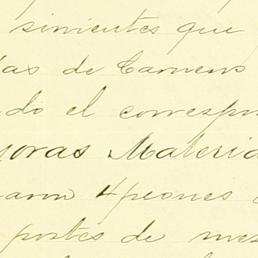 simientes que
las de Carmens
do el correspon
joras Materia
aron 4 peones
portes de mes